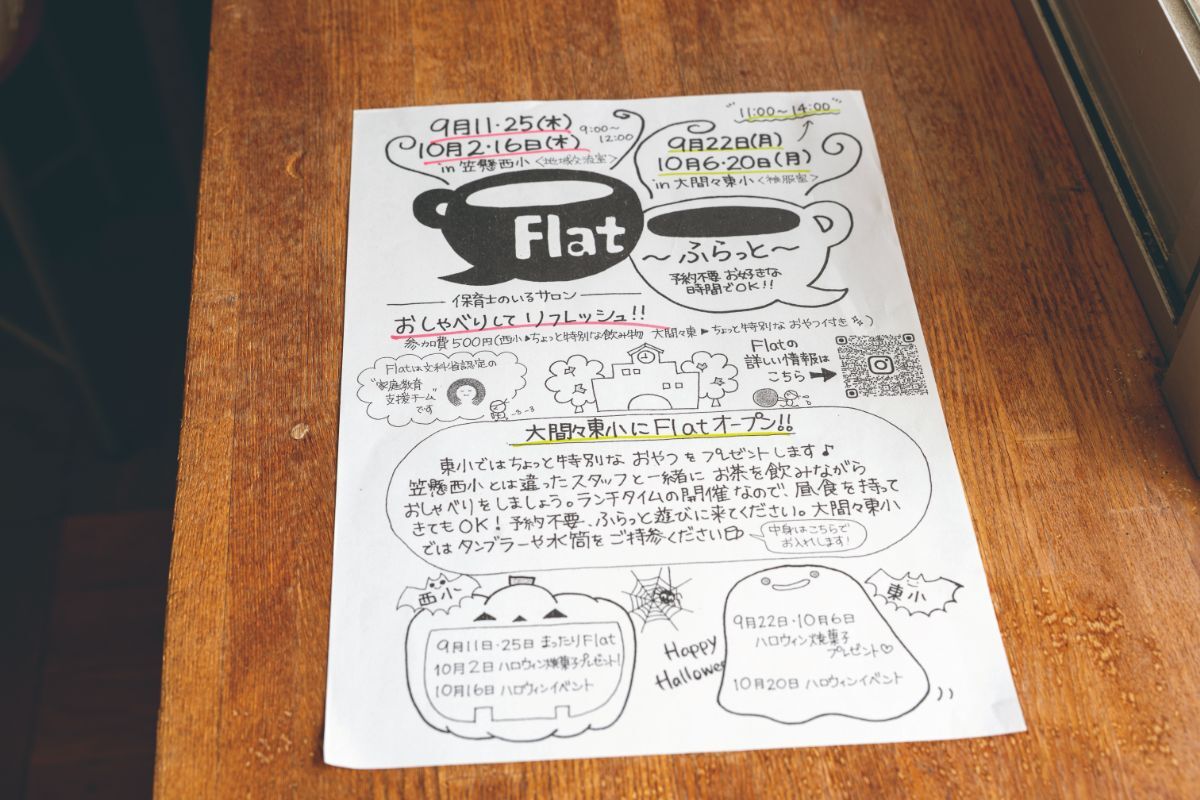 9月11・25日(木)
10月2・16日(木)
9:00〜
12:00
in 笠懸西小〈地域交流室〉
11:00〜14:00
9月22日(月)
10月6・20日(月)
in 大間々東小〈被服室〉
Flat
〜ふらっと〜
予約不要 お好きな
時間でOK!!
保育士のいるサロン
おしゃべりして リフレッシュ!!
参加費500円(西小▶ちょっと特別な飲み物 大間々東▶ちょっと特別な おやつ付き)
Flatは文科省認定の
"家庭教育
支援チーム"
です
Flatの
詳しい情報は
こちら
大間々東小にFlatオープン!!
東小ではちょっと特別な おやつをプレゼントします♪
笠懸西小とは違ったスタッフと一緒に お茶を飲みながら
おしゃべりをしましょう。ランチタイムの開催なので、昼食を持って
きてもOK! 予約不要、ふらっと遊びに来てください。大間々東小
ではタンブラーや水筒をご持参ください
中身はこちらで
お入れします!
西小
9月11日・25日 まったりFlat
10月2日 ハロウィン焼菓子プレゼント!
10月16日 ハロウィンイベント
Happy
Hallowee
東小
9月22日・10月6日
ハロウィン焼菓子
プレゼント♡
10月20日 ハロウィンイベント